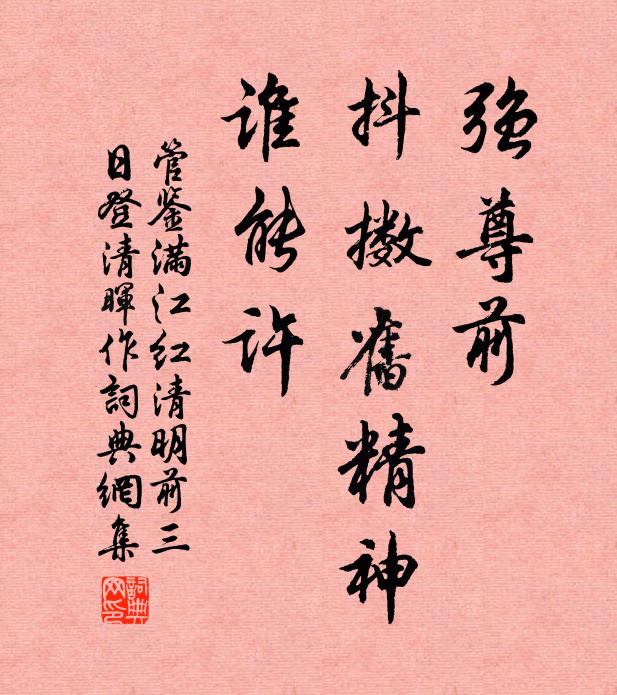 强尊前
抖擞舊精神
誰能許
管鉴滿江红清明前三
日登清暉作詞典網集
詞典网印